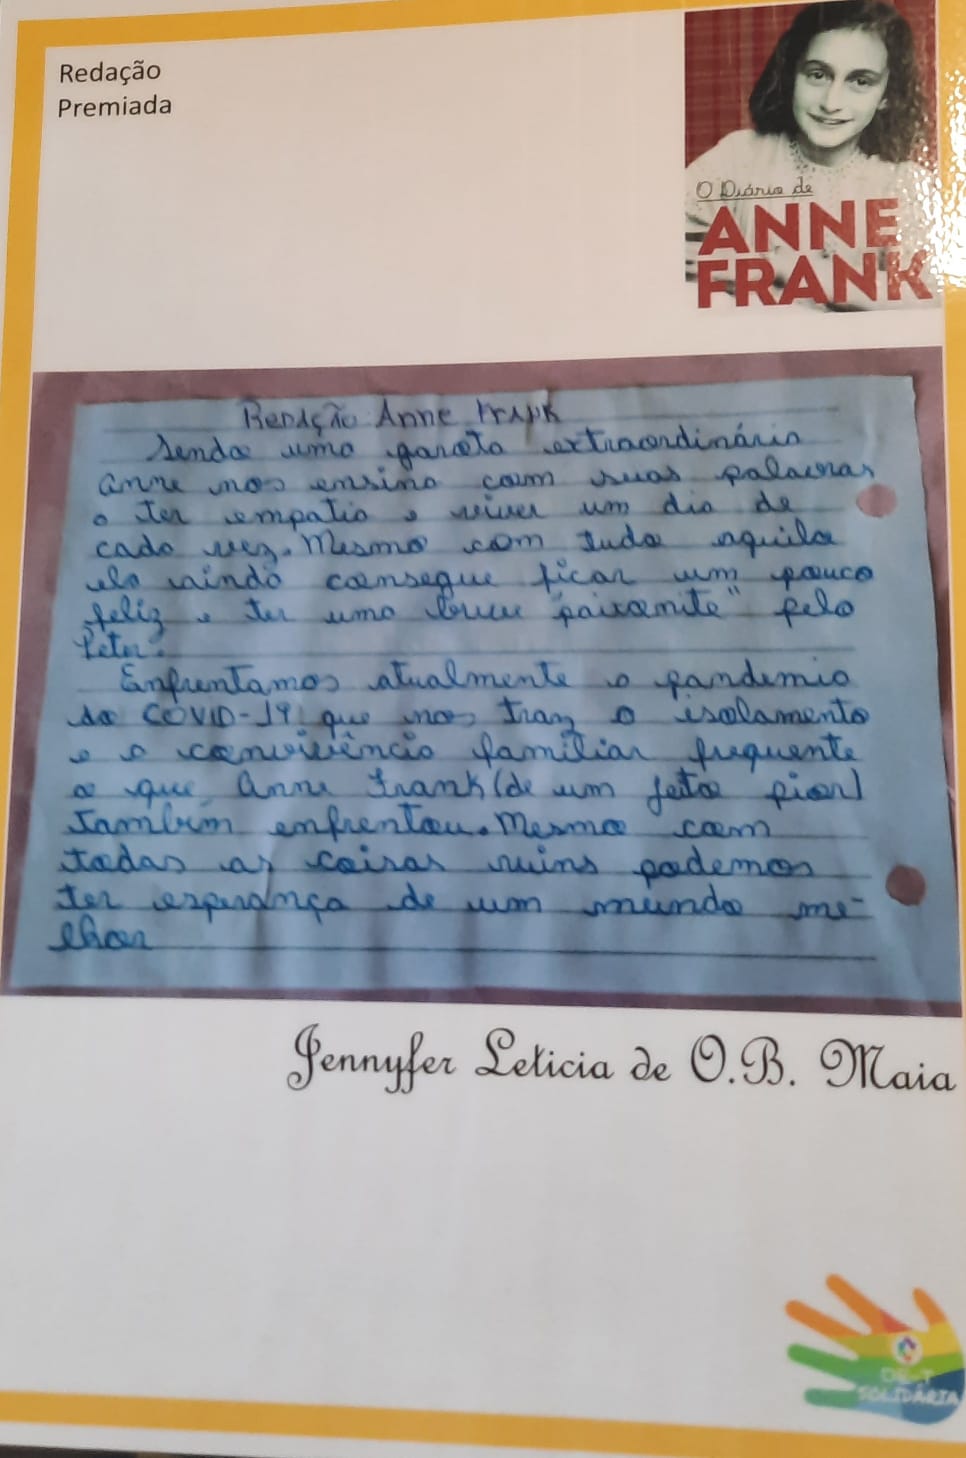 Redação
Premiada
O Diário de
ANNE
FRANK
Redação Anne Frank
Sendo uma garota extraordinária
Anne nos ensina com suas palavras
a ter empatia e viver um dia de
cada vez. Mesmo com tudo aquilo
ela ainda consegue ficar um pouco
feliz e ter uma breve "paixonite" pelo
Peter.
Enfrentamos atualmente a pandemia
da COVID-19 que nos traz o isolamento
e a convivência familiar frequente
o que Anne Frank (de um jeito pior)
também enfrentou. Mesmo com
todas as coisas ruins podemos
ter esperança de um mundo me-
lhor
Jennyfer Leticia de O.B. Maia
SOLIDÁRIA